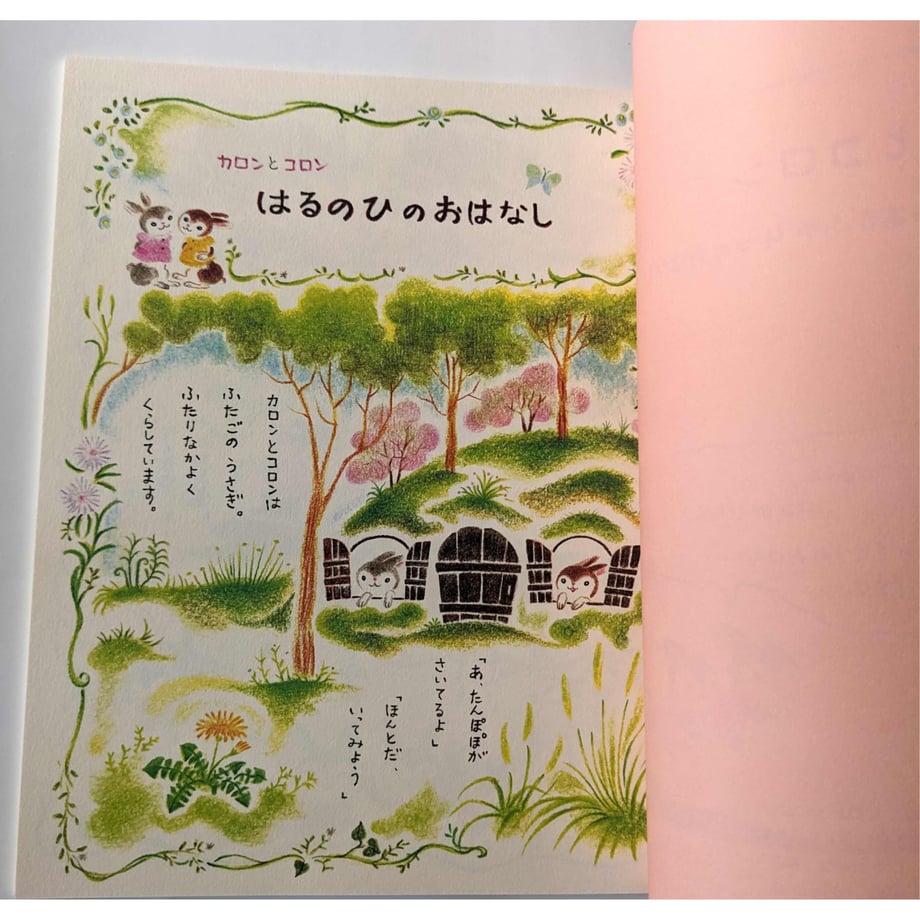 カロンとコロン
はるのひのおはなし
カロンとコロンは
ふたごの うさぎ。
ふたりなかよく
くらしています。
「あ、たんぽぽが
さいてるよ」
「ほんとだ、
いってみよう」